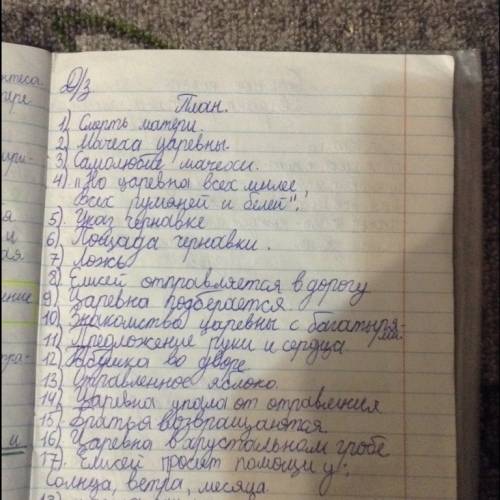 Д/з
План.
1) Смерть матери.
2) Мачеха царевны
3) Самолюбие мачехи.
4) "Но царевна всех милее,
Всех румяней и белей".
5) Указ чернавке
6) Пощада чернавки.
7) Ложь
8) Елисей отправляется в дорогу
9) Царевна подберается
10) Знакомство царевны с багатыря-
ми.
11) Предложение руки и сердца
12) Бабушка во дворе
13) Отравленное яблоко.
14) Царевна упала от отравления
15) Братья возвращаются
16) Царевна в хрустальном гробе
17) Елисей просит помощи у:
Солнца, ветра, месяца